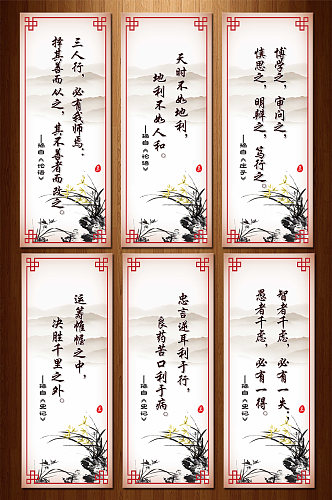 三人行，必有我师焉：
择其善而从之，其不善者而改之。
——摘自《论语》
天时不如地利，
地利不如人和。
——摘自《论语》
博学之，审问之，
慎思之，明辩之，笃行之。
——摘自《庄子》
运筹帷幄之中，
决胜千里之外。
——摘自《史记》
忠言逆耳利于行，
良药苦口利于病。
——摘自《史记》
智者千虑，必有一失；
愚者千虑，必有一得。
——摘自《史记》